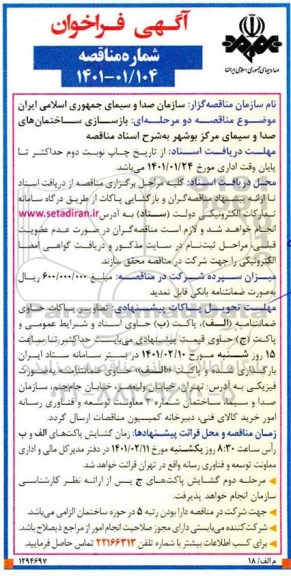 آگهی فراخوان
شماره مناقصه
۱۴۰۱-۰۱/۱۰۴
صدا و سیمای جمهوری اسلامی ایران
نام سازمان مناقصه‌گزار: سازمان صدا و سیمای جمهوری اسلامی ایران
موضوع مناقصه دو مرحله‌ای: بازسازی ساختمان‌های
صدا و سیمای مرکز بوشهر به‌شرح اسناد مناقصه
مهلت دریافت اسناد: از تاریخ چاپ نوبت دوم حداکثر تا
پایان وقت اداری مورخ ۱۴۰۱/۰۱/۲۴ می‌باشد.
محل دریافت اسناد: کلیه مراحل برگزاری مناقصه از دریافت اسناد
تا ارائه پیشنهاد مناقصه‌گران و بازگشایی پاکات از طریق درگاه سامانه
تدارک الکترونیکی دولت (ستاد) به آدرس www.setadiran.ir
انجام خواهد شد و لازم است مناقصه‌گران در صورت عدم عضویت
قبلی، مراحل ثبت‌نام در سایت مذکور و دریافت گواهی امضا
الکترونیکی را جهت شرکت در مناقصه محقق سازند.
میزان سپرده شرکت در مناقصه: مبلغ ۶۰۰/۰۰۰/۰۰۰ ریال
به‌صورت ضمانتنامه بانکی قابل تمدید
مهلت تحویل پاکات پیشنهادی: تصاویر پاکات حاوی
ضمانتنامه (الف)، پاکت (ب) حاوی اسناد و شرایط عمومی و
پاکت (ج) حاوی قیمت پیشنهادی می‌بایست حداکثر تا ساعت
۱۵ روز شنبه مورخ ۱۴۰۱/۰۲/۱۰ در بستر سامانه ستاد ایران
بارگذاری و پاکت «الف» حاوی ضمانتنامه به‌صورت
فیزیکی به آدرس: تهران خیابان ولیعصر، خیابان جام‌جم، سازمان
صدا و سیما، ساختمان معاونت توسعه و فناوری رسانه
امور خرید کالای فنی، دبیرخانه کمیسیون مناقصات ارسال گردد.
زمان مناقصه و محل قرائت پیشنهادها: زمان گشایش پاکت‌های الف و ب
رأس ساعت ۸:۳۰ روز یکشنبه مورخ ۱۴۰۱/۰۲/۱۱ در دفتر مدیرکل مالی و اداری
معاونت توسعه و فناوری رسانه واقع در تهران قرائت خواهد شد.
مرحله دوم گشایش پاکت‌های ج پس از ارائه نظر کارشناسی
سازمان انجام خواهد پذیرفت.
جهت شرکت در مناقصه دارا بودن رتبه ۵ در حوزه ساختمان الزامی می‌باشد.
شرکت‌کننده می‌بایستی دارای مجوز صلاحیت انجام امور از مراجع ذیصلاح باشد.
برای کسب اطلاعات بیشتر با شماره تلفن ۲۲۱۶۶۳۱۳ تماس حاصل فرمایید.
م الف/ ۱۸
۱۲۹۴۶۹۷